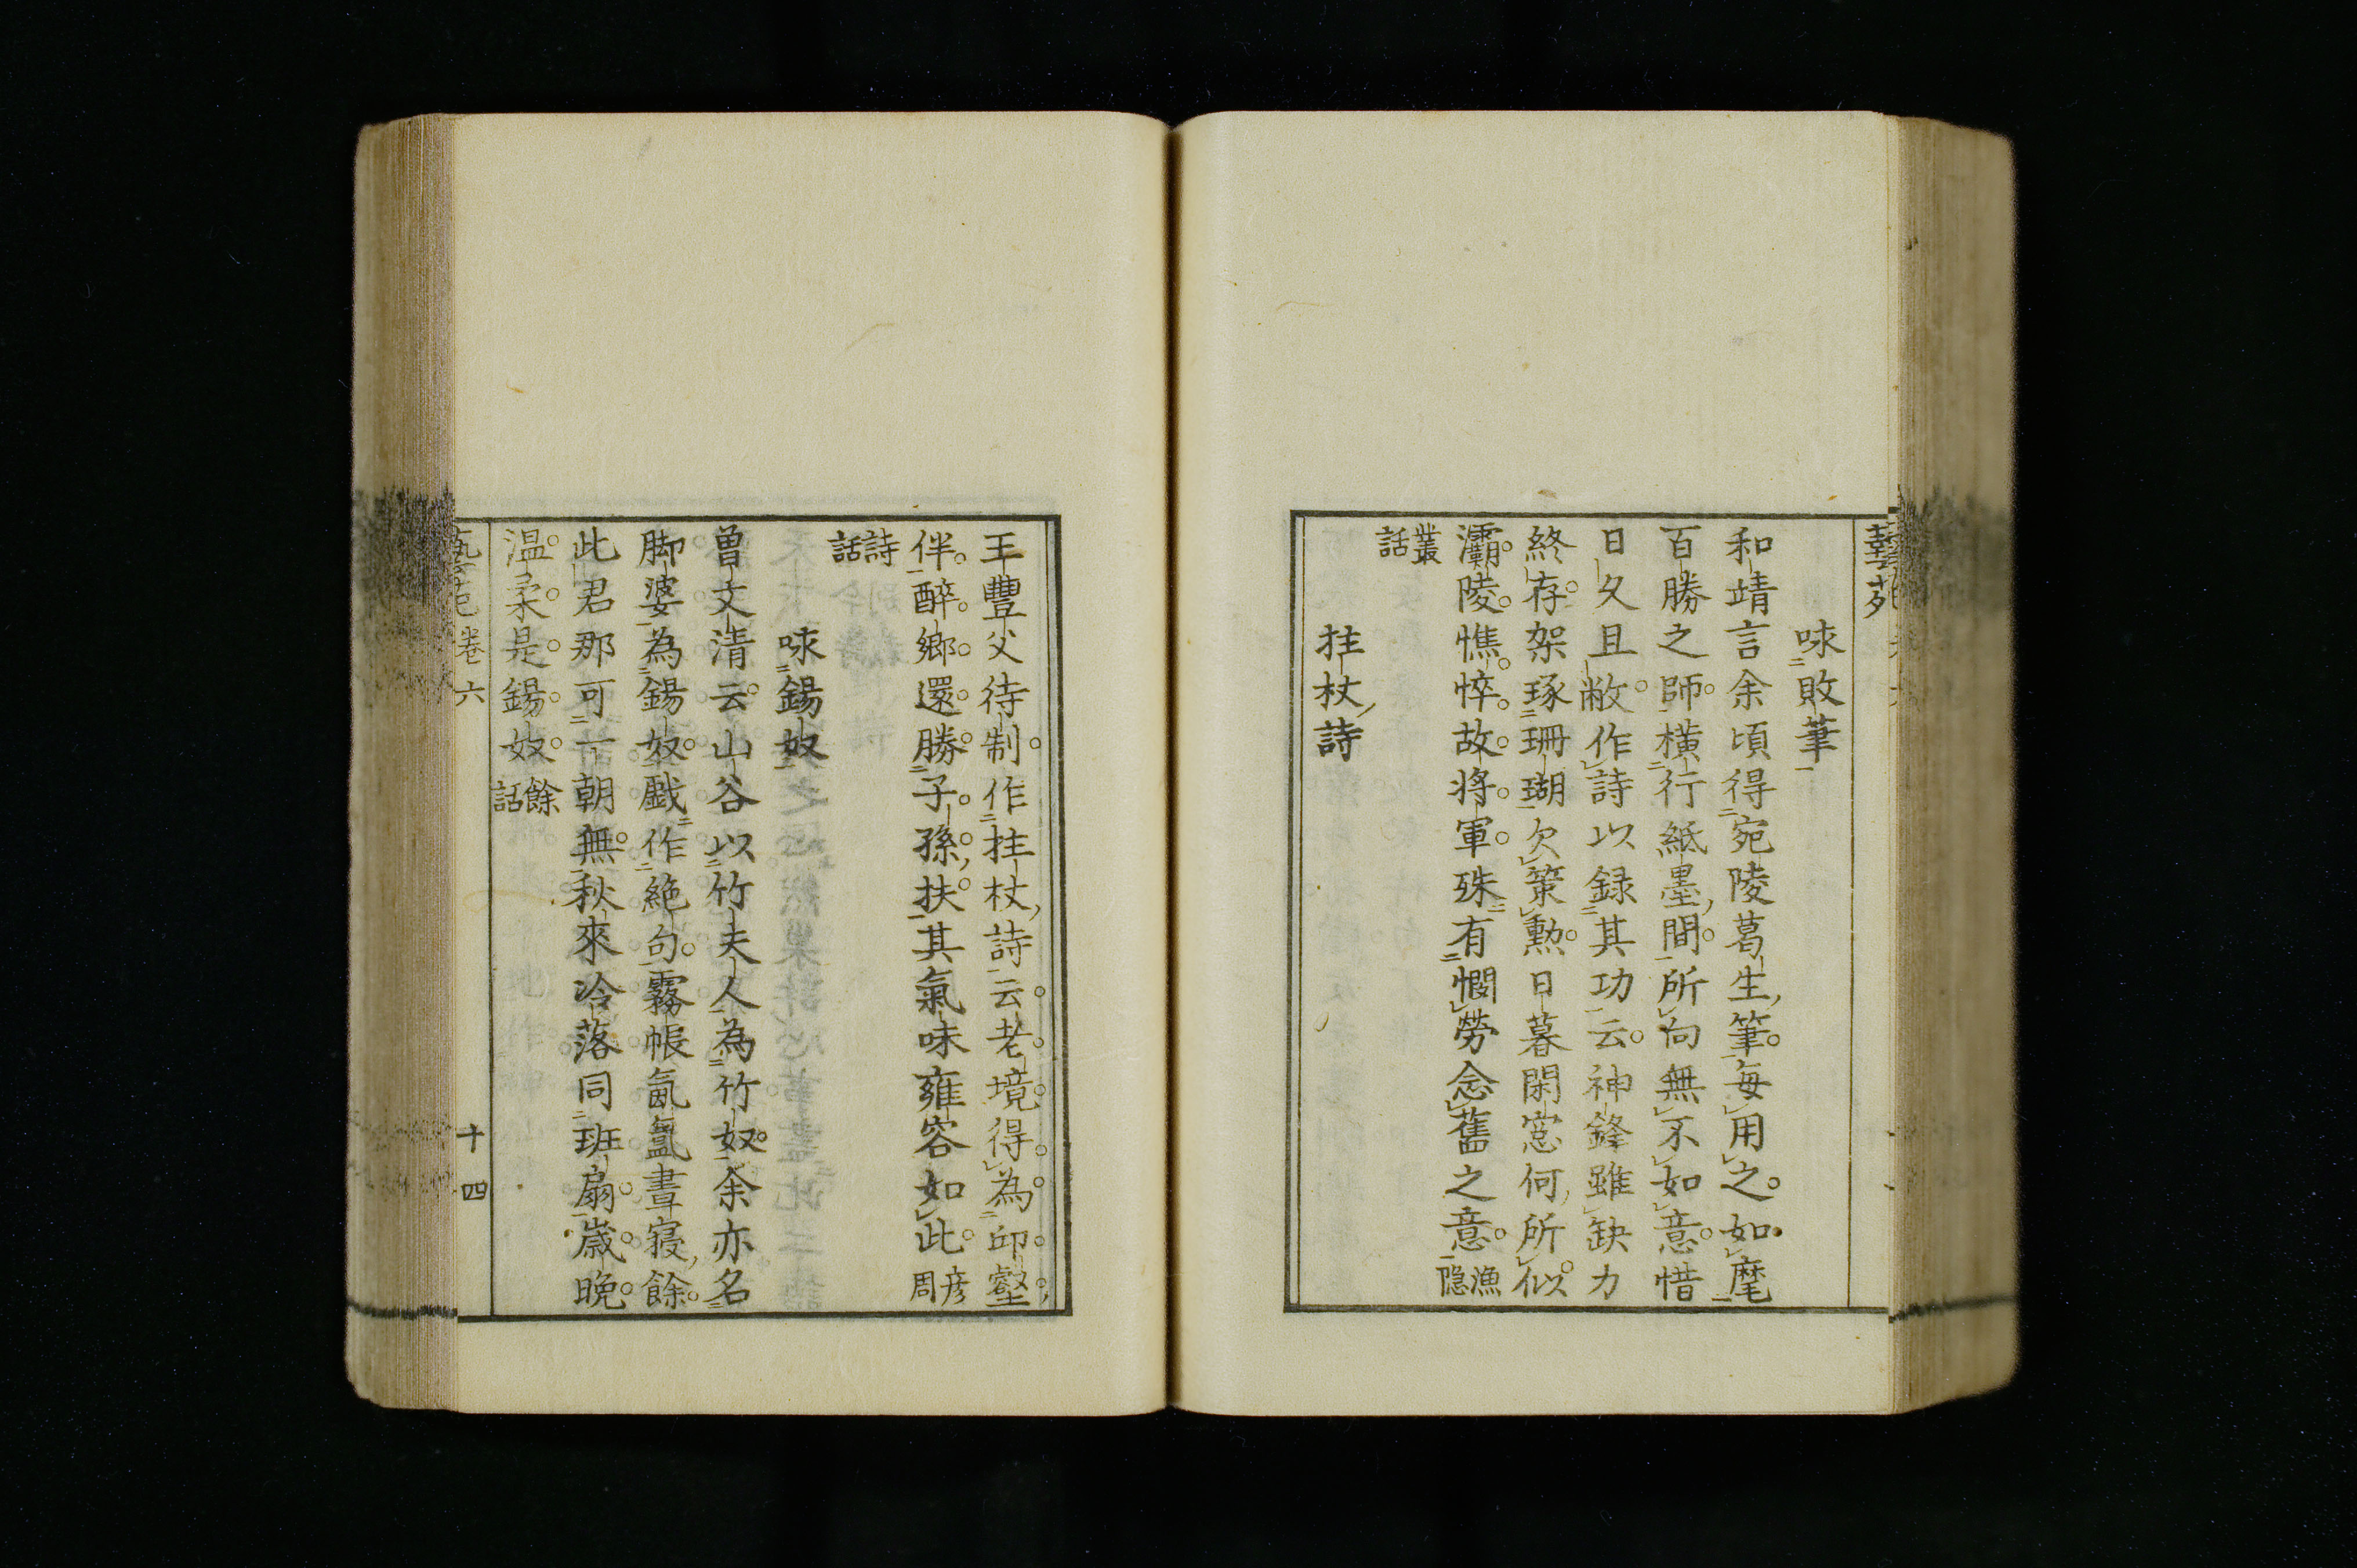 藝苑
㖨敗筆
和靖言余頃得宛陵葛生筆每用之如麾
百勝之師橫行紙墨間所向無不如意惜
日久且敝作詩以録其功云神鋒雖缺力
終存架琢珊瑚欠策勲日暮閑窓何所似
灞陵憔悴故将軍殊有憫勞念舊之意漁隠
叢話
拄杖詩
王豐父待制作拄杖詩云老境得為邱壑
伴醉鄉還勝子孫扶其氣味雍容如此彦周
詩話
㖨錫奴
曽文清云山谷以竹夫人為竹奴余亦名
脚婆為錫奴戯作絶句霧帳氤氳晝寝餘
此君那可一朝無秋來冷落同班扇歳晩
温柔是錫奴餘話
藝苑卷六 十四